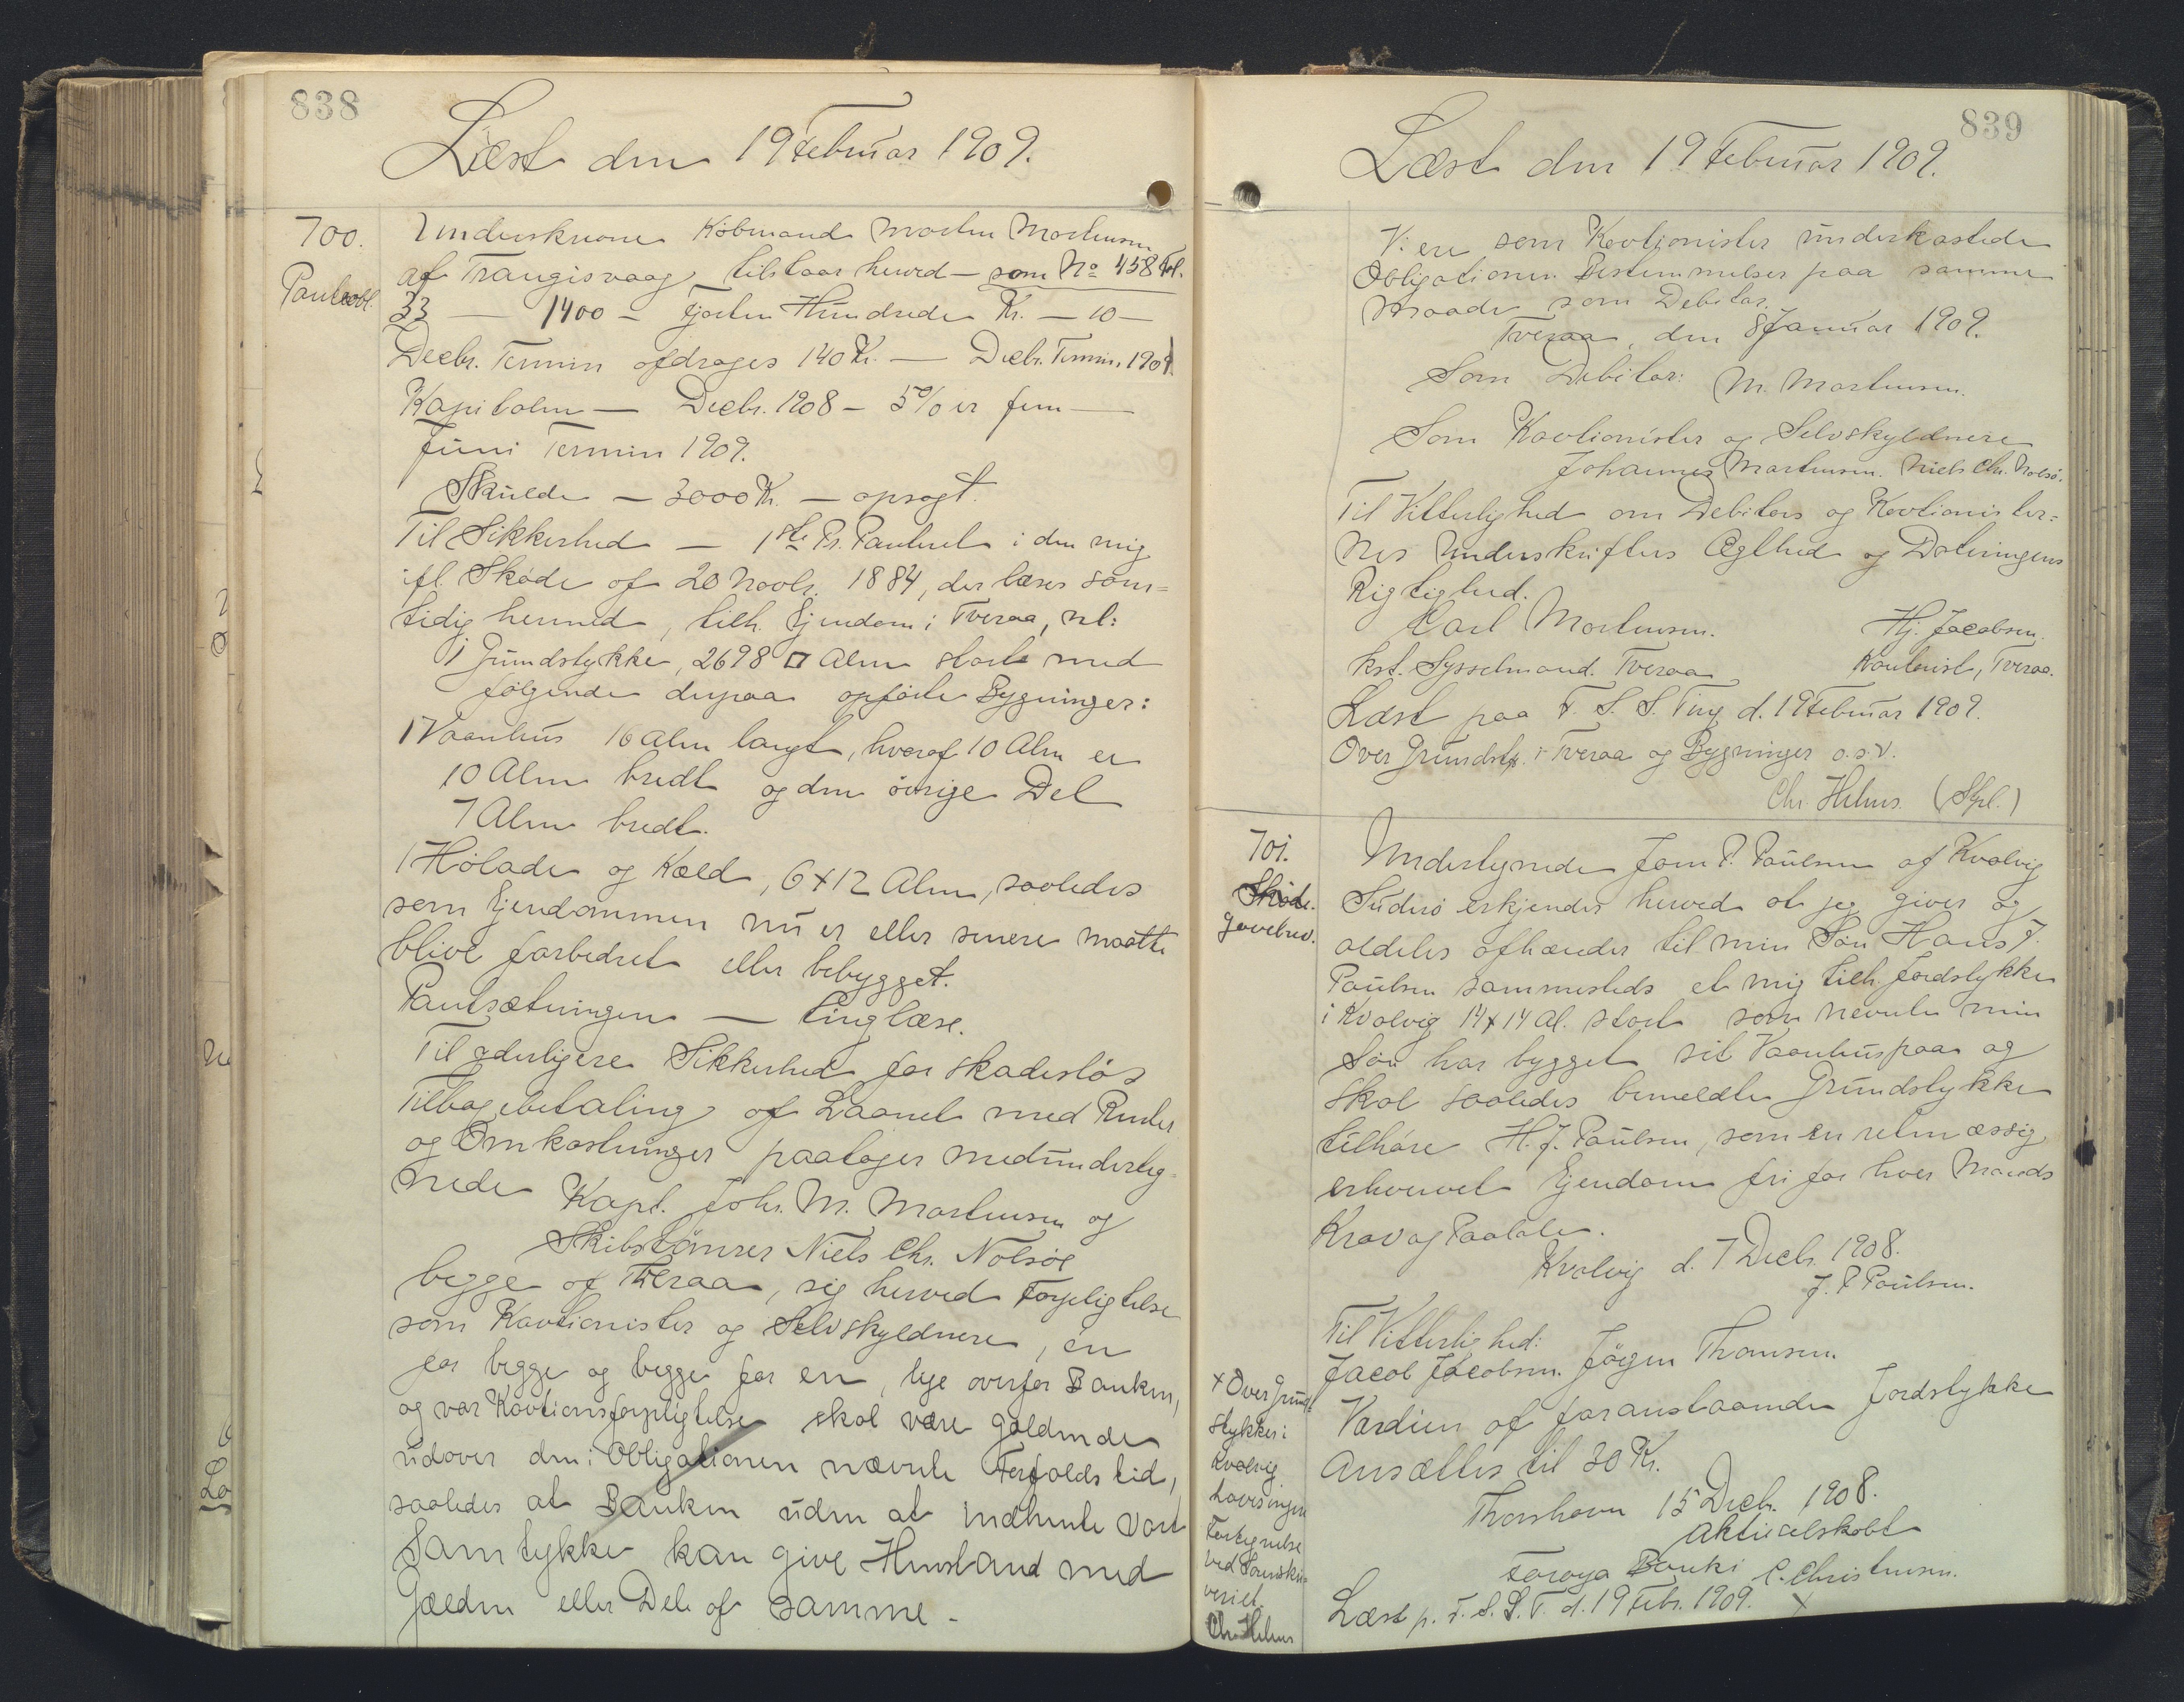 838
Læst den 19 Februar 1909.
700.
Panteobl.
Underskrevne Købmand Morten Mortensen
af Trangisvaag, tilstaar herved — som No 458 Fol.
33 — 1400 — Fjorten Hundrede Kr. — 10 —
Decbr. Termin afdrages 140 Kr. — Decbr. Termin 1909.
Kapitalen — Decbr. 1908 — 5% er fem —
Juni Termin 1909.
Skulde — 3000 Kr. — opsagt.
Til Sikkerhed — 1ste Pr. Panteret i den mig
ifl. Skøde af 20 Novbr. 1884, der læses sam=
tidig hermed, tilh. Ejendom i Tveraa, nl:
1 Grundstykke, 2698 □ Alen stort med
følgende derpaa opførte Bygninger:
1 Vaanhus 16 Alen langt, hvoraf 10 Alen er
10 Alen bredt og den øvrige Del
7 Alen bredt.
1 Hølade og Kæld, 6 x 12 Alen, saaledes
som Ejendommen nu er eller senere maatte
blive forbedret eller bebygget.
Pantsætningen — tinglæse.
Til yderligere Sikkerhed for skadesløs
Tilbagebetaling af Laanet med Renter
og Omkostninger paatager medunderteg-
nede Kapt. Johs. M. Mortensen og
Skibstømrer Niels Chr. Nolsøe
begge af Tveraa, sig herved Forpligtelse
som Kavtionister og Selvskyldnere, én
for begge og begge for en, lige overfor Banken,
og vor Kavtionsforpligtelse skal være gældende
udover den i Obligationen nævnte Forfaldstid,
saaledes at Banken uden at indhente vort
Samtykke kan give Henstand med
Gælden eller Dele af samme -
839
Læst den 19 Februar 1909.
Vi ere som Kavtionister underkastede
Obligationens Bestemmelser paa samme
Maade som Debitor.
Tveraa, den 8 Januar 1909.
Som Debitor: M. Mortensen.
Som Kavtionister og Selvskyldnere
Johannes Mortensen. Niels Chr. Nolsø.
Til Vitterlighed om Debitors og Kavtionister=
nes Underskrifters Ægthed og Dateringens
Rigtighed.
Carl Mortensen. Hj. Jacobsen.
kst. Sysselmand. Tveraa Kontorist, Tveraa.
Læst paa F. S. S. Ting d. 19 Februar 1909.
Over Grundstk. i Tveraa og Bygninger o.s.v.
Chr. Helms. (Spl.)
701.
Skøde.
Gavebrev.
Undertegnede Joen P. Poulsen af Kvalvig
Suderø erkjender herved at jeg giver og
aldeles afhænder til min Søn Hans J.
Poulsen sammesteds et mig tilh. Jordstykke
i Kvalvig 14 x 14 Al. stort som nævnte min
Søn har bygget sit Vaanhus paa og
skal saaledes bemeldte Grundstykke
tilhøre H. J. Poulsen, som en retmæssig
erhvervet Ejendom fri for hver Mands
Krav og Paatale.
Kvalvig d. 7 Decbr. 1908.
J. P. Poulsen.
Til Vitterlighed:
Jacob Jacobsen. Jørgen Thomsen.
Værdien af foranstaaende Jordstykke
ansættes til 30 Kr.
Thorshavn 15 Decb. 1908.
Aktieselskabet
Føroya Banki C. Christensen.
Læst p. F. S. S. T. d. 19 Febr. 1909. x
x Over Grund=
stykker i
Kvalvig
haves ingen
Fortegnelse
ved Sorenskri=
veriet.
Chr. Helms